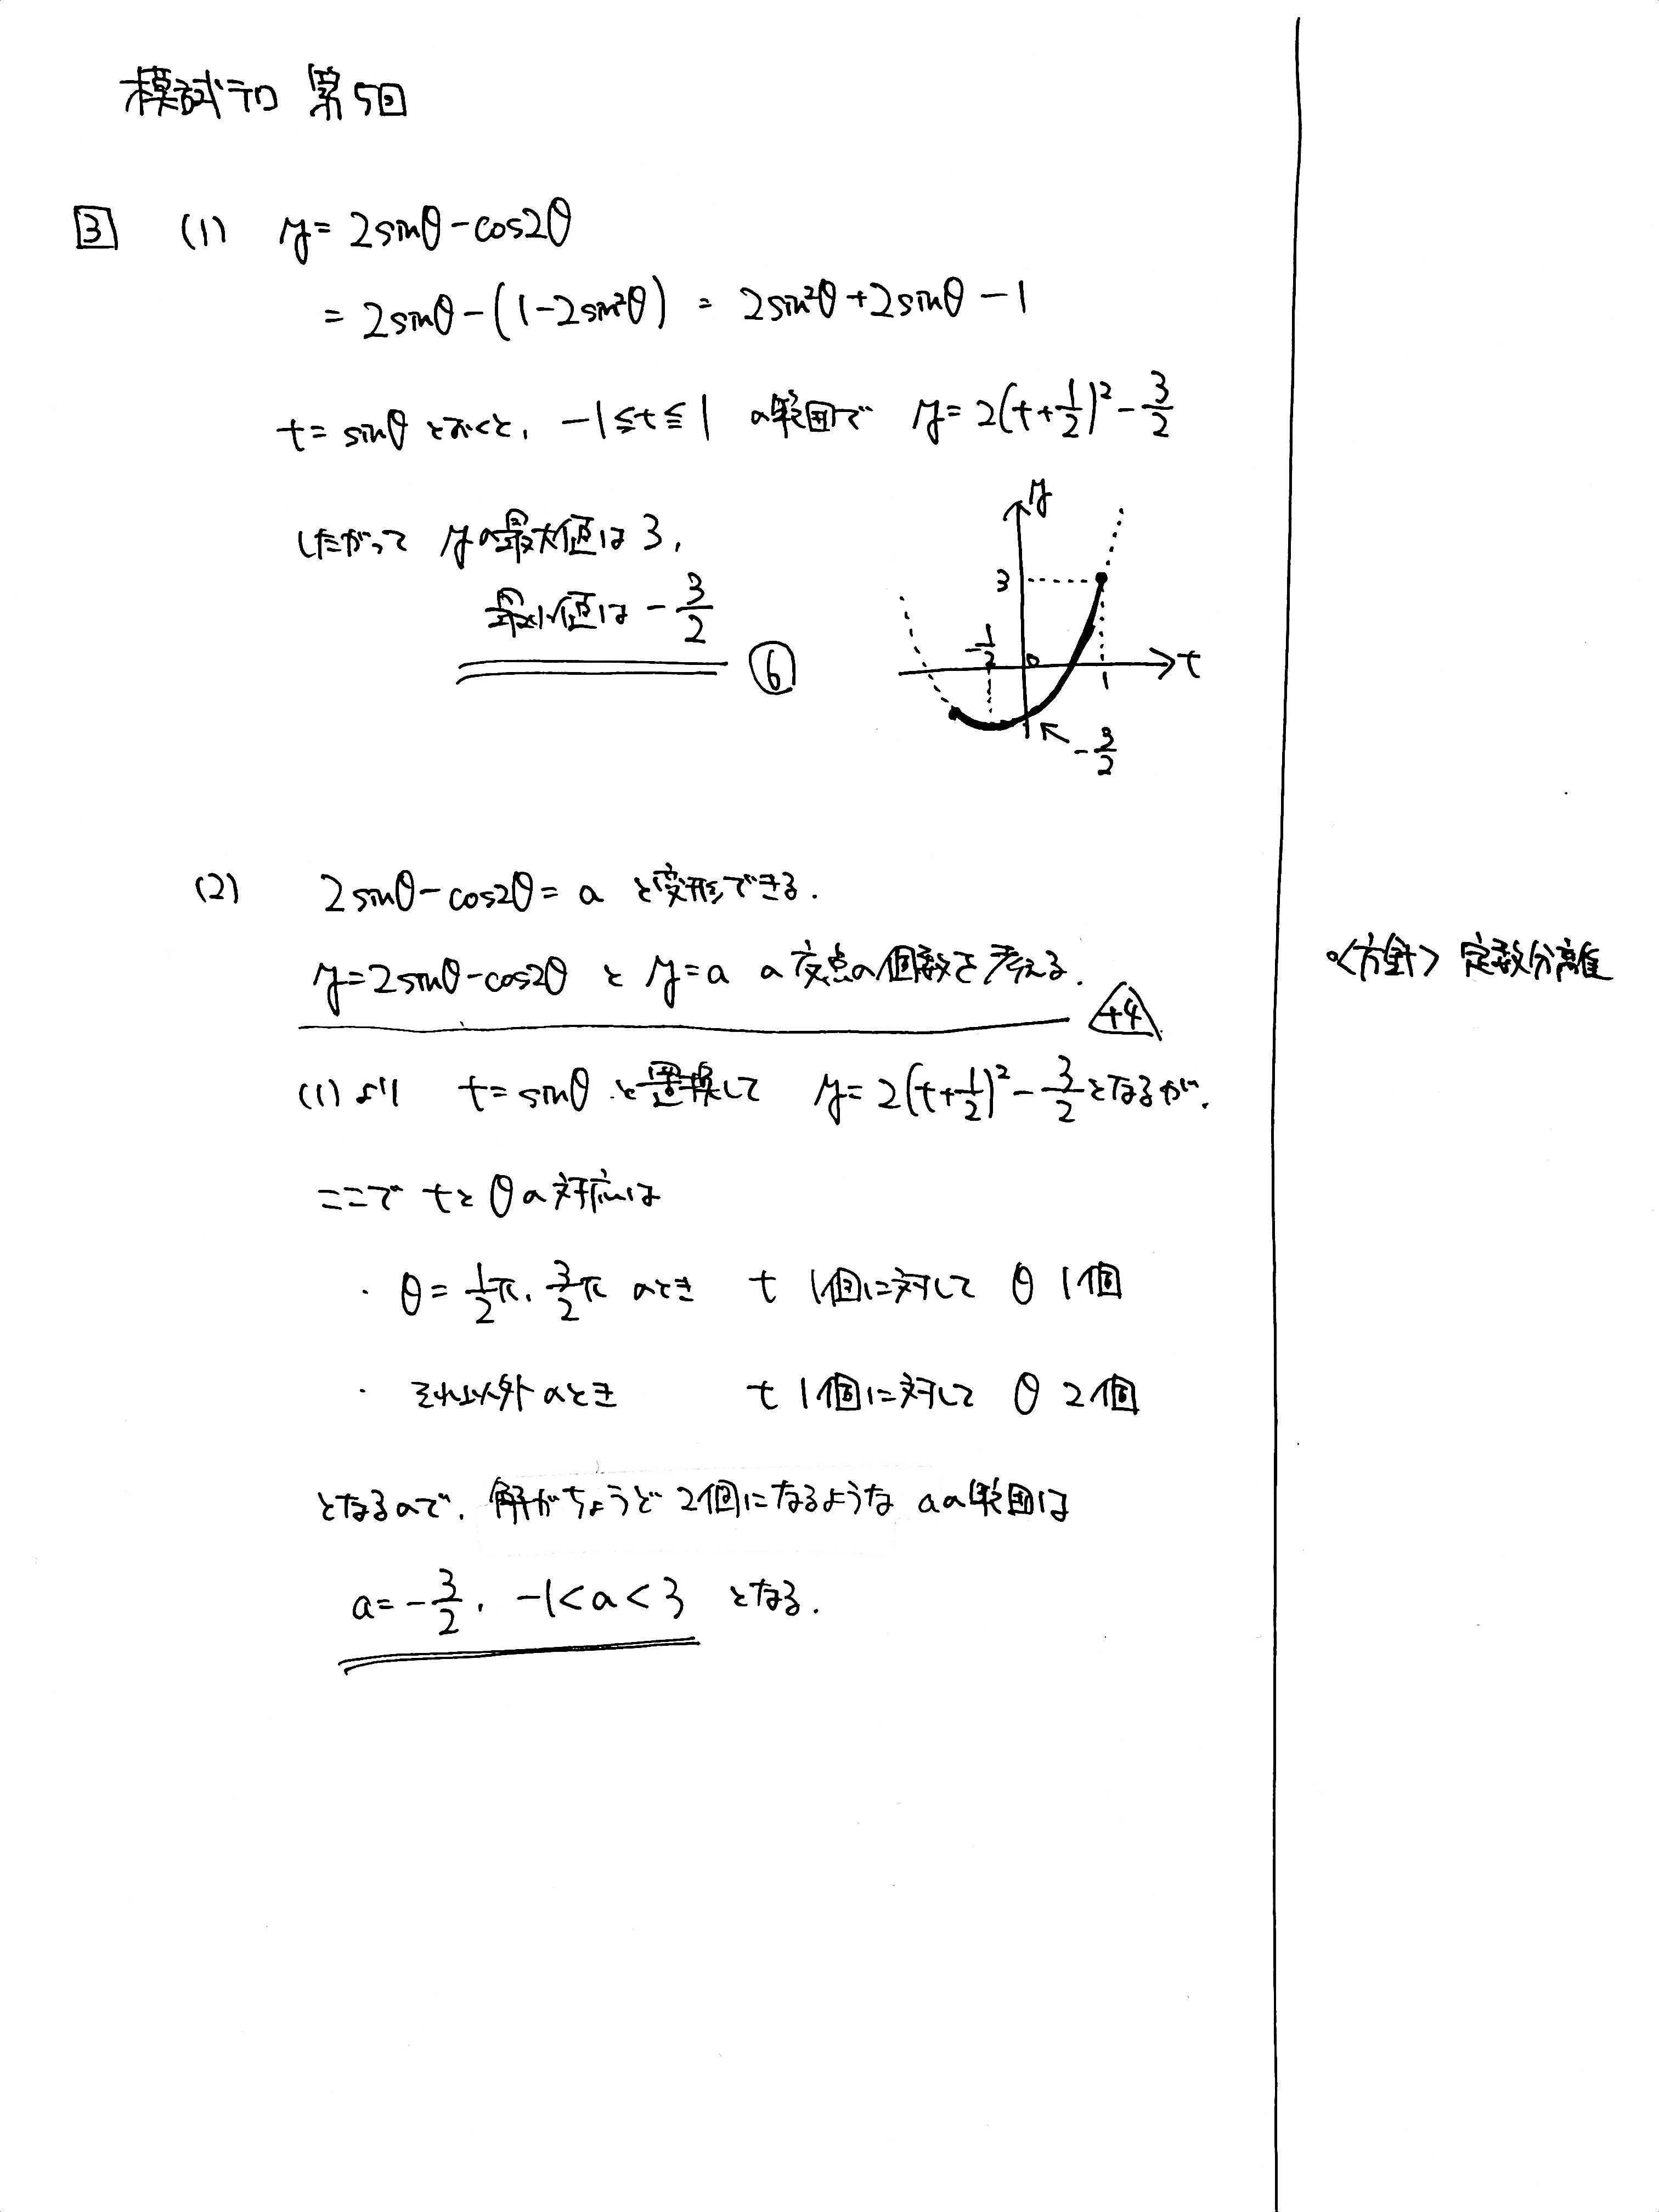 模試テロ 第5回
3 (1) y = 2sinθ - cos2θ
= 2sinθ - (1 - 2sin²θ) = 2sin²θ + 2sinθ - 1
t = sinθ とおくと, -1 ≦ t ≦ 1 の範囲で y = 2(t + 1/2)² - 3/2
したがって yの最大値は 3,
最小値は - 3/2
⑥
y
3
-1/2
0
1
t
- 3/2
(2) 2sinθ - cos2θ = a と変形できる.
y = 2sinθ - cos2θ と y = a の交点の個数を考える.
+4
〈方針〉 定数分離
(1)より t = sinθ と置換して y = 2(t + 1/2)² - 3/2 となるが,
ここで tとθの対応は
・ θ = 1/2 π, 3/2 π のとき t 1個に対して θ 1個
・ それ以外のとき t 1個に対して θ 2個
となるので, 解がちょうど2個になるような aの範囲は
a = - 3/2, -1 < a < 3 となる.